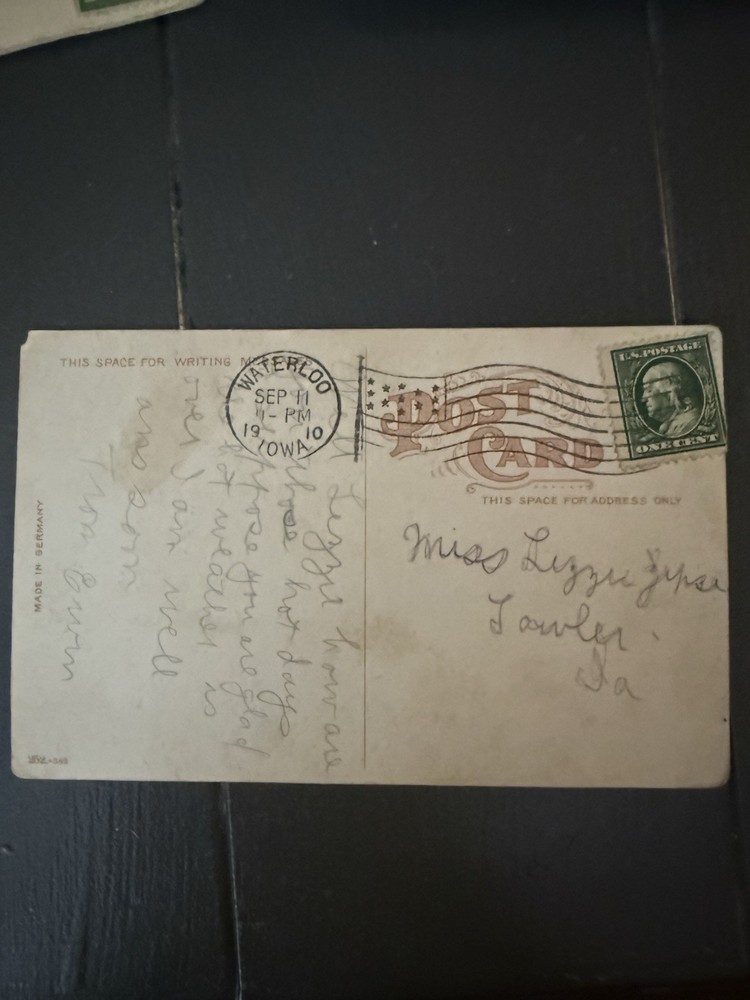 THIS SPACE FOR WRITING
WATERLOO
SEP 11
1 - PM
19 10
IOWA
U.S. POSTAGE
ONE CENT
POST
CARD
THIS SPACE FOR ADDRESS ONLY
Miss Lizzie
Ia
Lizzie how are
these hot days
suppose you are glad
hot weather is
over I am well
and
From Erwin
MADE IN GERMANY